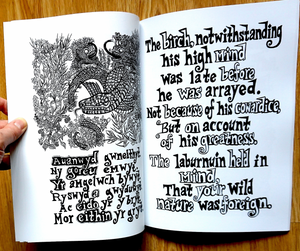 Auanwyd gwneithyt
Ny goreu emwyt
Yr angelwch bywyt
Ryswyd a gwydutyt
Ac eidn yr y bryt
Mor eithin yr gryt
The birch, notwithstanding
his high Mind
was late before
he was arrayed.
Not because of his cowardice
But on account
of his greatness.
The laburnum held in
Mind,
That your Wild
nature was foreign.